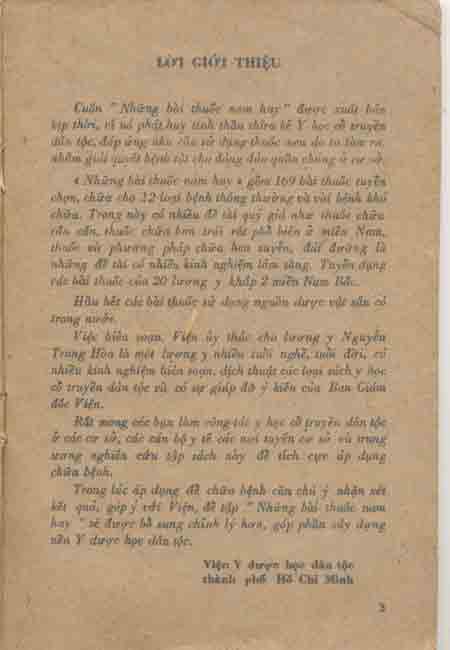 LỜI GIỚI THIỆU
Cuốn " Những bài thuốc nam hay " được xuất bản
kịp thời, vì nó phát huy tinh thần thừa kế Y học cổ truyền
dân tộc, đáp ứng nhu cầu sử dụng thuốc nam do ta làm ra,
nhằm giải quyết bệnh tật cho đông đảo quần chúng ở cơ sở.
« Những bài thuốc nam hay » gồm 169 bài thuốc tuyển
chọn, chữa cho 32 loại bệnh thông thường và vài bệnh khó
chữa. Trong này có nhiều đề tài quý giá như thuốc chữa
rắn cắn, thuốc chữa ban trái rất phổ biến ở miền Nam,
thuốc và phương pháp chữa hen suyễn, đái đường là
những đề tài có nhiều kinh nghiệm lâm sàng. Tuyển dụng
các bài thuốc của 20 lương y khắp 2 miền Nam Bắc.
Hầu hết các bài thuốc sử dụng nguồn dược vật sẵn có
trong nước.
Việc biên soạn, Viện ủy thác cho lương y Nguyễn
Trung Hòa là một lương y nhiều tuổi nghề, tuổi đời, có
nhiều kinh nghiệm biên soạn, dịch thuật các loại sách y học
cổ truyền dân tộc và có sự giúp đỡ ý kiến của Ban Giám
đốc Viện.
Rất mong các bạn làm công tác y học cổ truyền dân tộc
ở các cơ sở, các cán bộ y tế các nơi tuyến cơ sở và trung
ương nghiên cứu tập sách này để tích cực áp dụng
chữa bệnh.
Trong lúc áp dụng để chữa bệnh cần chú ý nhận xét
kết quả, góp ý với Viện, để tập " Những bài thuốc nam
hay " sẽ được bổ sung chỉnh lý hơn, góp phần xây dựng
nền Y dược học dân tộc.
Viện Y dược học dân tộc
thành phố Hồ Chí Minh
3